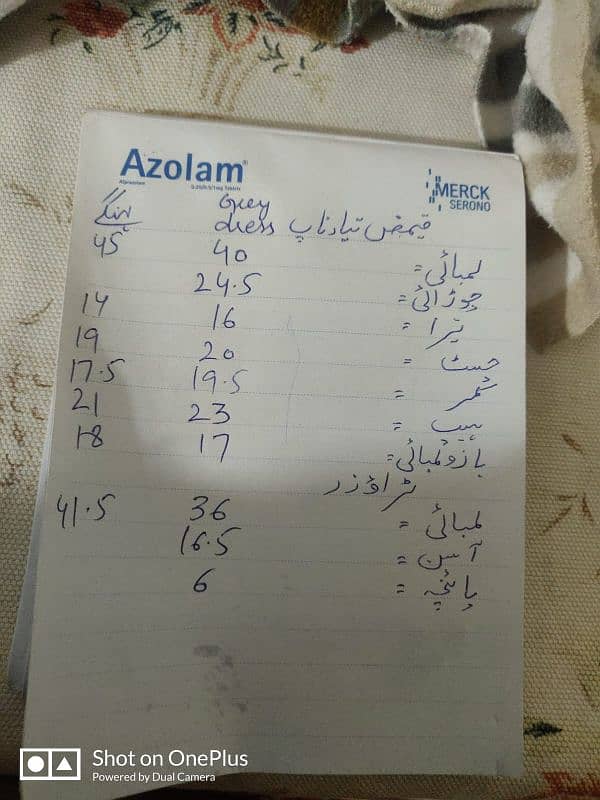 Azolam®
Alprazolam
0.25/0.5/1mg Tablets
MERCK
SERONO
قیمض تیار ناپ Grey dress
لمبائی = 40 45
چوڑائی = 24.5
تیرا = 16 14
چسٹ = 20 19
کمر = 19.5 17.5
ہیپ = 23 21
بازو لمبائی = 17 18
ٹراؤزر
لمبائی = 36 41.5
آسن = 16.5
پائنچہ = 6
Shot on OnePlus
Powered by Dual Camera